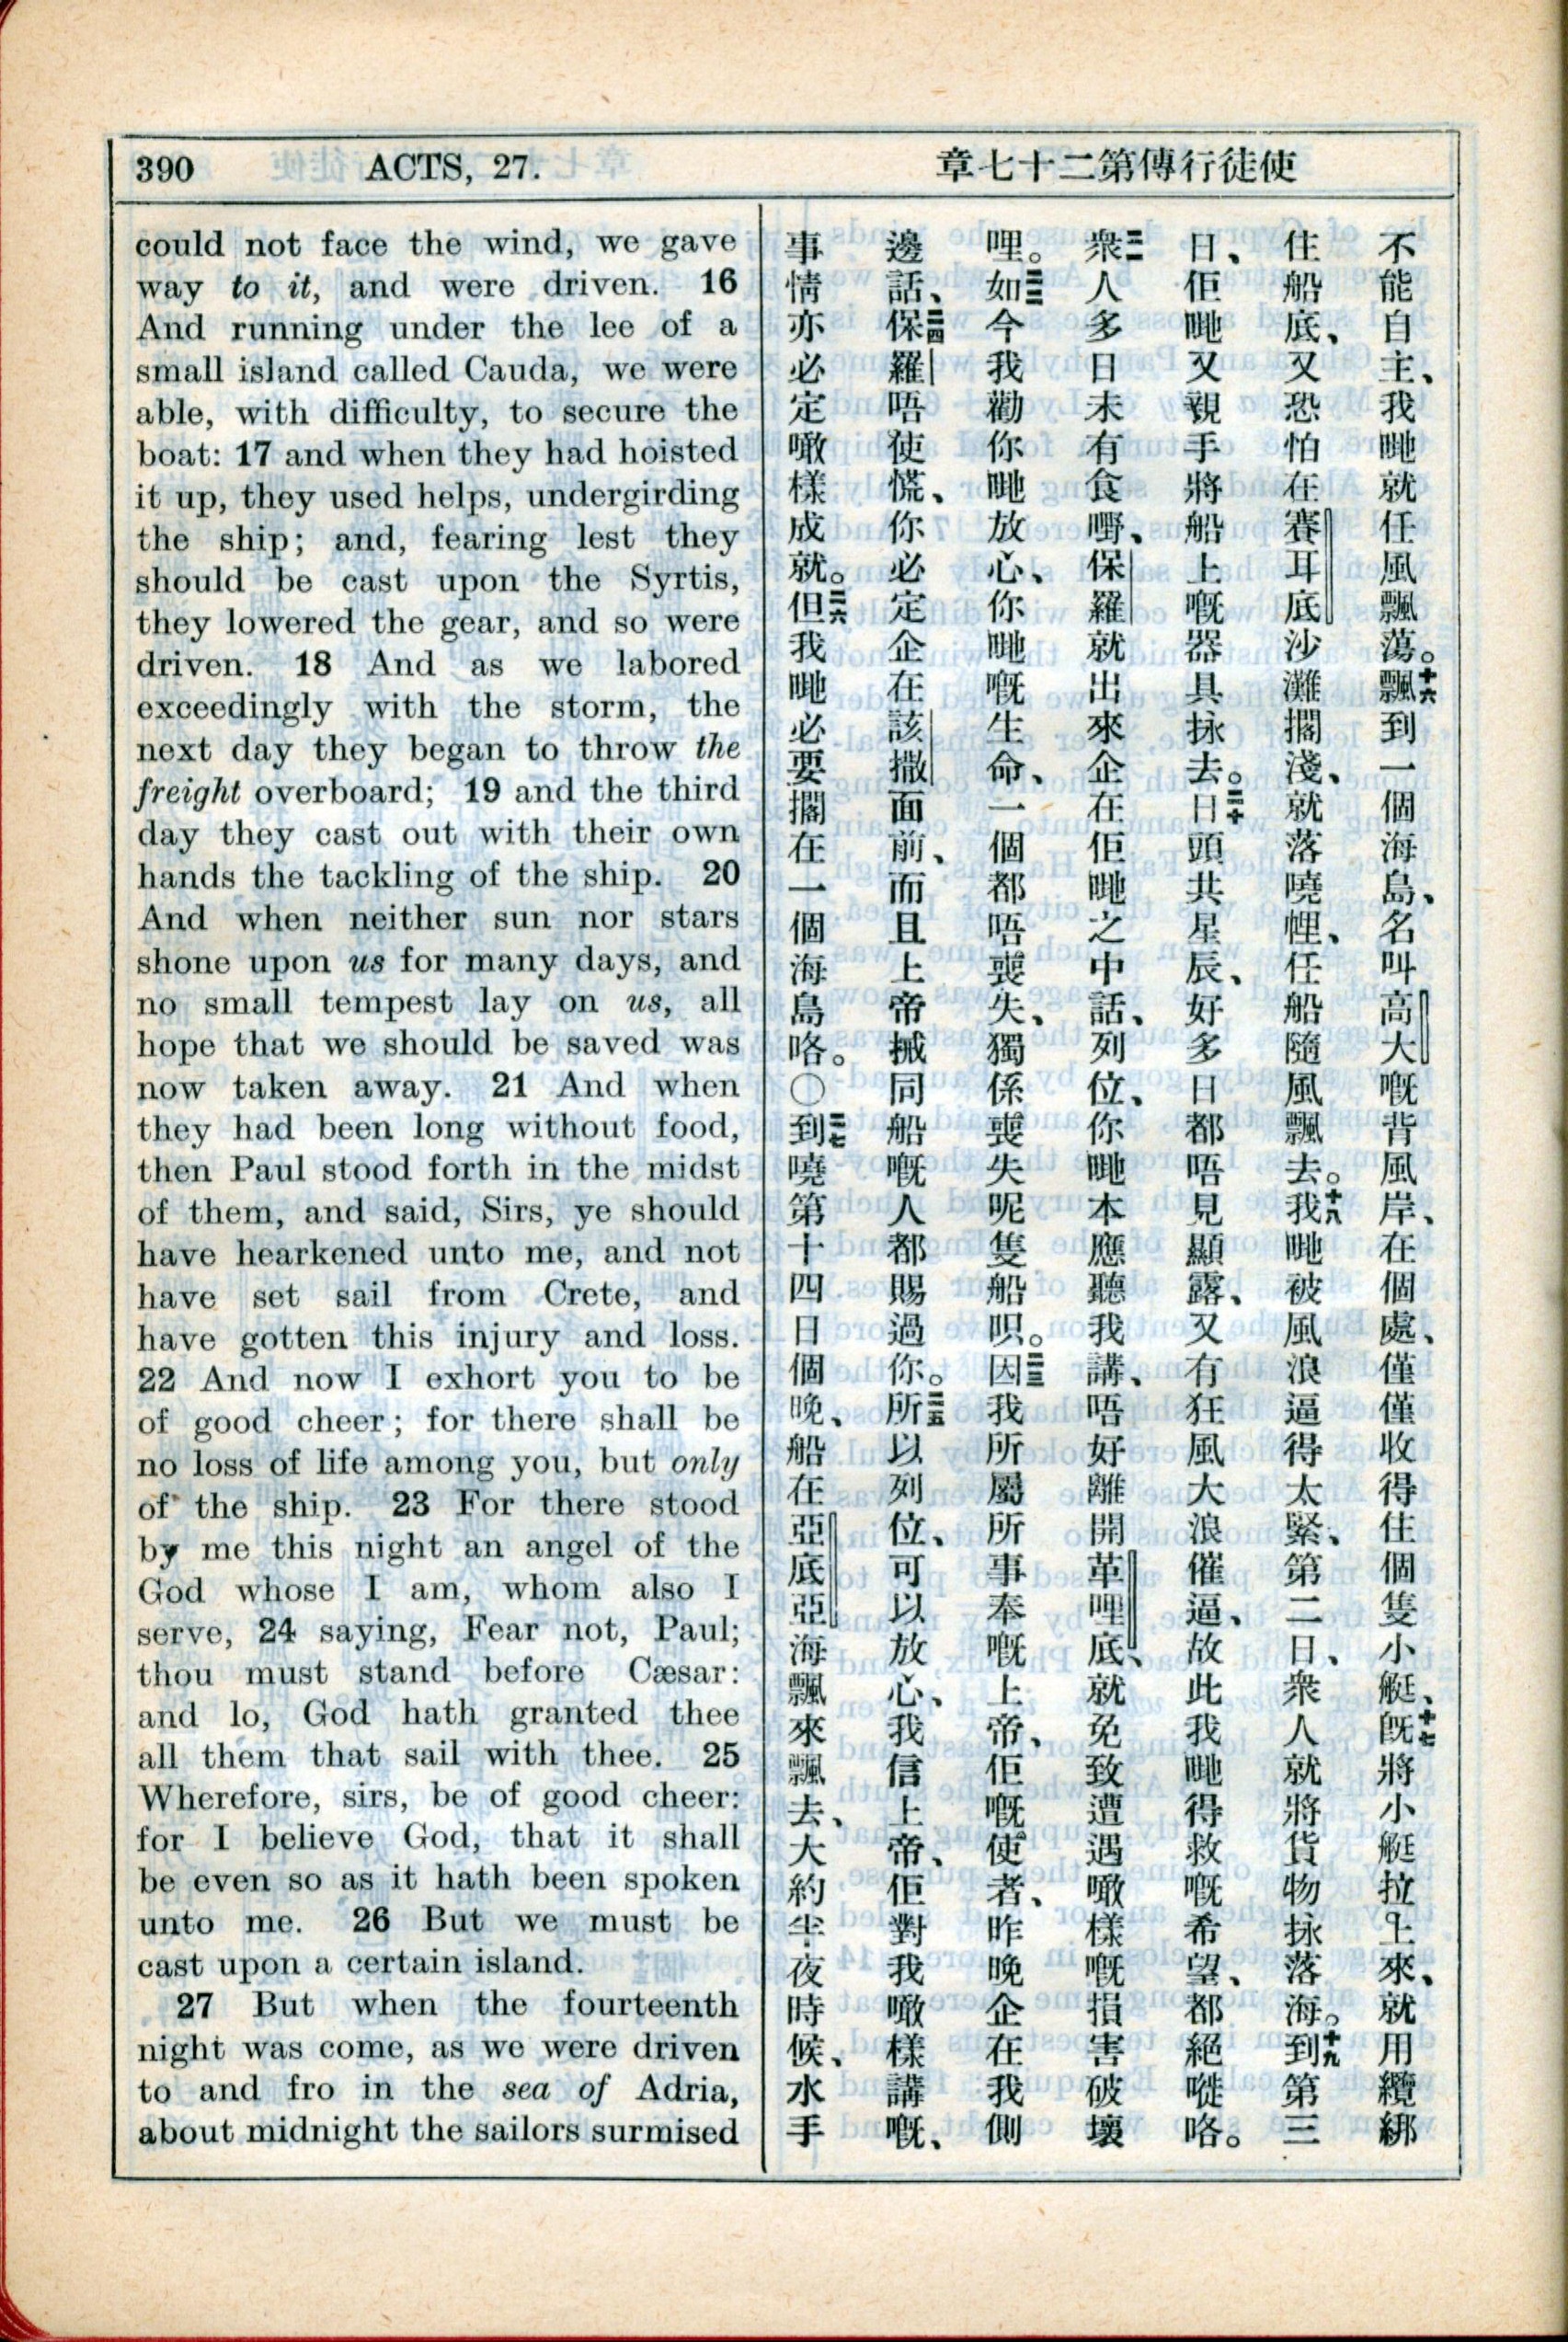 390 ACTS, 27.
使徒行傳第二十七章
could not face the wind, we gave
way to it, and were driven. 16
And running under the lee of a
small island called Cauda, we were
able, with difficulty, to secure the
boat: 17 and when they had hoisted
it up, they used helps, undergirding
the ship; and, fearing lest they
should be cast upon the Syrtis,
they lowered the gear, and so were
driven. 18 And as we labored
exceedingly with the storm, the
next day they began to throw the
freight overboard; 19 and the third
day they cast out with their own
hands the tackling of the ship. 20
And when neither sun nor stars
shone upon us for many days, and
no small tempest lay on us, all
hope that we should be saved was
now taken away. 21 And when
they had been long without food,
then Paul stood forth in the midst
of them, and said, Sirs, ye should
have hearkened unto me, and not
have set sail from Crete, and
have gotten this injury and loss.
22 And now I exhort you to be
of good cheer; for there shall be
no loss of life among you, but only
of the ship. 23 For there stood
by me this night an angel of the
God whose I am, whom also I
serve, 24 saying, Fear not, Paul;
thou must stand before Cæsar:
and lo, God hath granted thee
all them that sail with thee. 25
Wherefore, sirs, be of good cheer:
for I believe God, that it shall
be even so as it hath been spoken
unto me. 26 But we must be
cast upon a certain island.
27 But when the fourteenth
night was come, as we were driven
to and fro in the sea of Adria,
about midnight the sailors surmised
不能自主、我哋就任風飄蕩。十六飄到一個海島、名叫高大嘅背風岸、在個處、僅僅收得住個隻小艇、十七既將小艇拉上來、就用纜綁
住船底、又恐怕在賽耳底沙灘擱淺、就落嘵𢃇、任船隨風飄去。十八我哋被風浪逼得太緊、第二日、衆人就將貨物落海。十九到第三
日、佢哋又親手將船上嘅器具去。二十日頭共星辰、好多日都唔見顯露、又有狂風大浪催逼、故此我哋得救嘅希望、都絕嘥咯。
二一衆人多日未有食嘢、保羅就出來企在佢哋之中話、列位、你哋本應聽我講、唔好離開革哩底、就免致遭遇噉樣嘅損害破壞
哩。二二如今我勸你哋放心、你哋嘅生命、一個都唔喪失、獨係喪失呢隻船呮。二三因我所屬所事奉嘅上帝、佢嘅使者、昨晚企在我側
邊話、二四保羅唔使慌、你必定企在該撒面前、而且上帝同船嘅人都賜過你。二五所以列位、可以放心、我信上帝、佢對我噉樣講嘅、
事情亦必定噉樣成就。二六但我哋必要擱在一個海島咯。○二七到嘵第十四日個晚、船在亞底亞海飄來飄去、大約半夜時候、水手